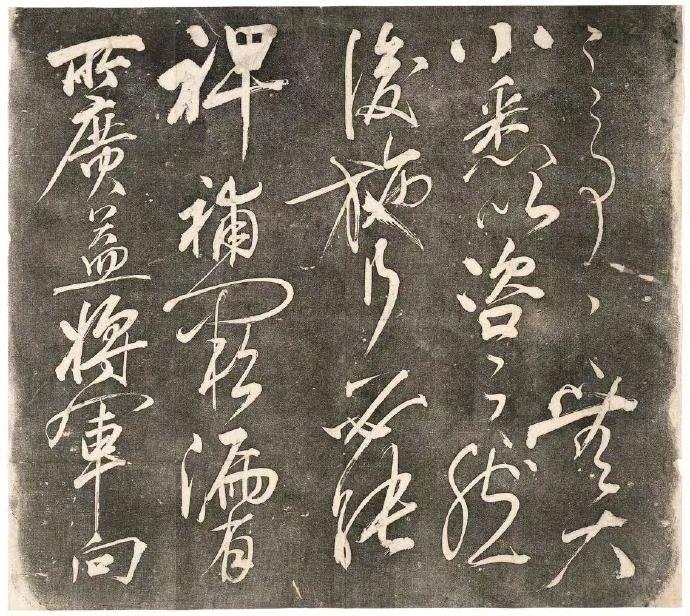 之事〻無大
小悉以咨之然
後施行必能
裨補闕漏有
所廣益將軍向